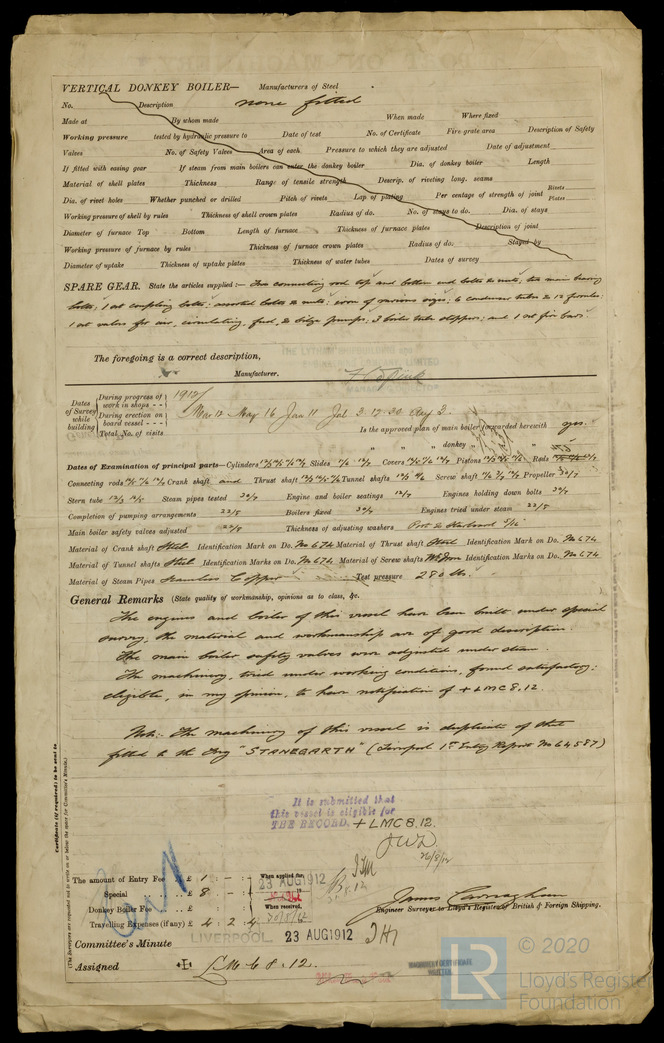 VERTICAL DONKEY BOILER— Manufacturers of Steel
No. Description none fitted
Made at By whom made When made Where fixed
Working pressure tested by hydraulic pressure to Date of test No. of Certificate Fire grate area Description of Safety
Valves No. of Safety Valves Area of each Pressure to which they are adjusted Date of adjustment
If fitted with easing gear If steam from main boilers can enter the donkey boiler Dia. of donkey boiler Length
Material of shell plates Thickness Range of tensile strength Descrip. of riveting long. seams
Dia. of rivet holes Whether punched or drilled Pitch of rivets Lap of plating Per centage of strength of joint Rivets Plates
Working pressure of shell by rules Thickness of shell crown plates Radius of do. No. of stays to do. Dia. of stays
Diameter of furnace Top Bottom Length of furnace Thickness of furnace plates Description of joint
Working pressure of furnace by rules Thickness of furnace crown plates Radius of do. Stayed by
Diameter of uptake Thickness of uptake plates Thickness of water tubes Dates of survey
SPARE GEAR. State the articles supplied:— Two connecting rod top and bottom end bolts & nuts, two main bearing
bolts; 1 set coupling bolts; assorted bolts & nuts; iron of various sizes; 6 condenser tubes & 12 ferrules;
1 set valves for air, circulating, feed, & bilge pumps; 3 boiler tube stoppers; and 1 set fire bars
The foregoing is a correct description,
Manufacturer.
Dates of Survey while building
During progress of work in shops - -
During erection on board vessel - - -
Total No. of visits
1912/ Mar 12 May 16 Jun 11 Jul 3. 17. 30. Aug 3.
Is the approved plan of main boiler forwarded herewith yes.
" " " donkey " " "
Dates of Examination of principal parts—Cylinders Slides Covers Pistons Rods
Connecting rods Crank shaft and Thrust shaft Tunnel shafts Screw shaft Propeller 30/7
Stern tube Steam pipes tested Engine and boiler seatings Engines holding down bolts
Completion of pumping arrangements 23/8 Boilers fixed Engines tried under steam 23/8
Main boiler safety valves adjusted Thickness of adjusting washers Port & Starboard
Material of Crank shaft Steel Identification Mark on Do. No 674 Material of Thrust shaft Steel Identification Mark on Do. No 674
Material of Tunnel shafts Steel Identification Marks on Do. No 674 Material of Screw shafts Identification Marks on Do. No 674
Material of Steam Pipes Seamless Copper Test pressure 280 lbs.
General Remarks (State quality of workmanship, opinions as to class, &c.
The engines and boiler of this vessel have been built under special
survey, the material and workmanship are of good description.
The main boiler safety valves were adjusted under steam.
The machinery, tried under working conditions, found satisfactory;
eligible, in my opinion, to have notification of + LMC 8.12.
Note:- The machinery of this vessel is duplicate of that
fitted to the Tug "STANEGARTH" (Liverpool 1st Entry Report No 64587)
It is submitted that
this vessel is eligible for
THE RECORD. + LMC 8.12.
26/8/12
The amount of Entry Fee .. £ 1 : - : When applied for,
Special .. £ 8 : - : 23 AUG 1912
Donkey Boiler Fee .. £ : : When received,
Travelling Expenses (if any) £ 4 : 2 : 4
Engineer Surveyor to Lloyd's Register of British & Foreign Shipping.
Committee's Minute LIVERPOOL 23 AUG 1912
Assigned + LMC 8.12.
MACHINERY CERTIFICATE
WRITTEN.
Certificate (if required) to be sent to
(The Surveyors are requested not to write on or below the space for Committee's Minute.)
© 2020
LR
Lloyd's Register
Foundation